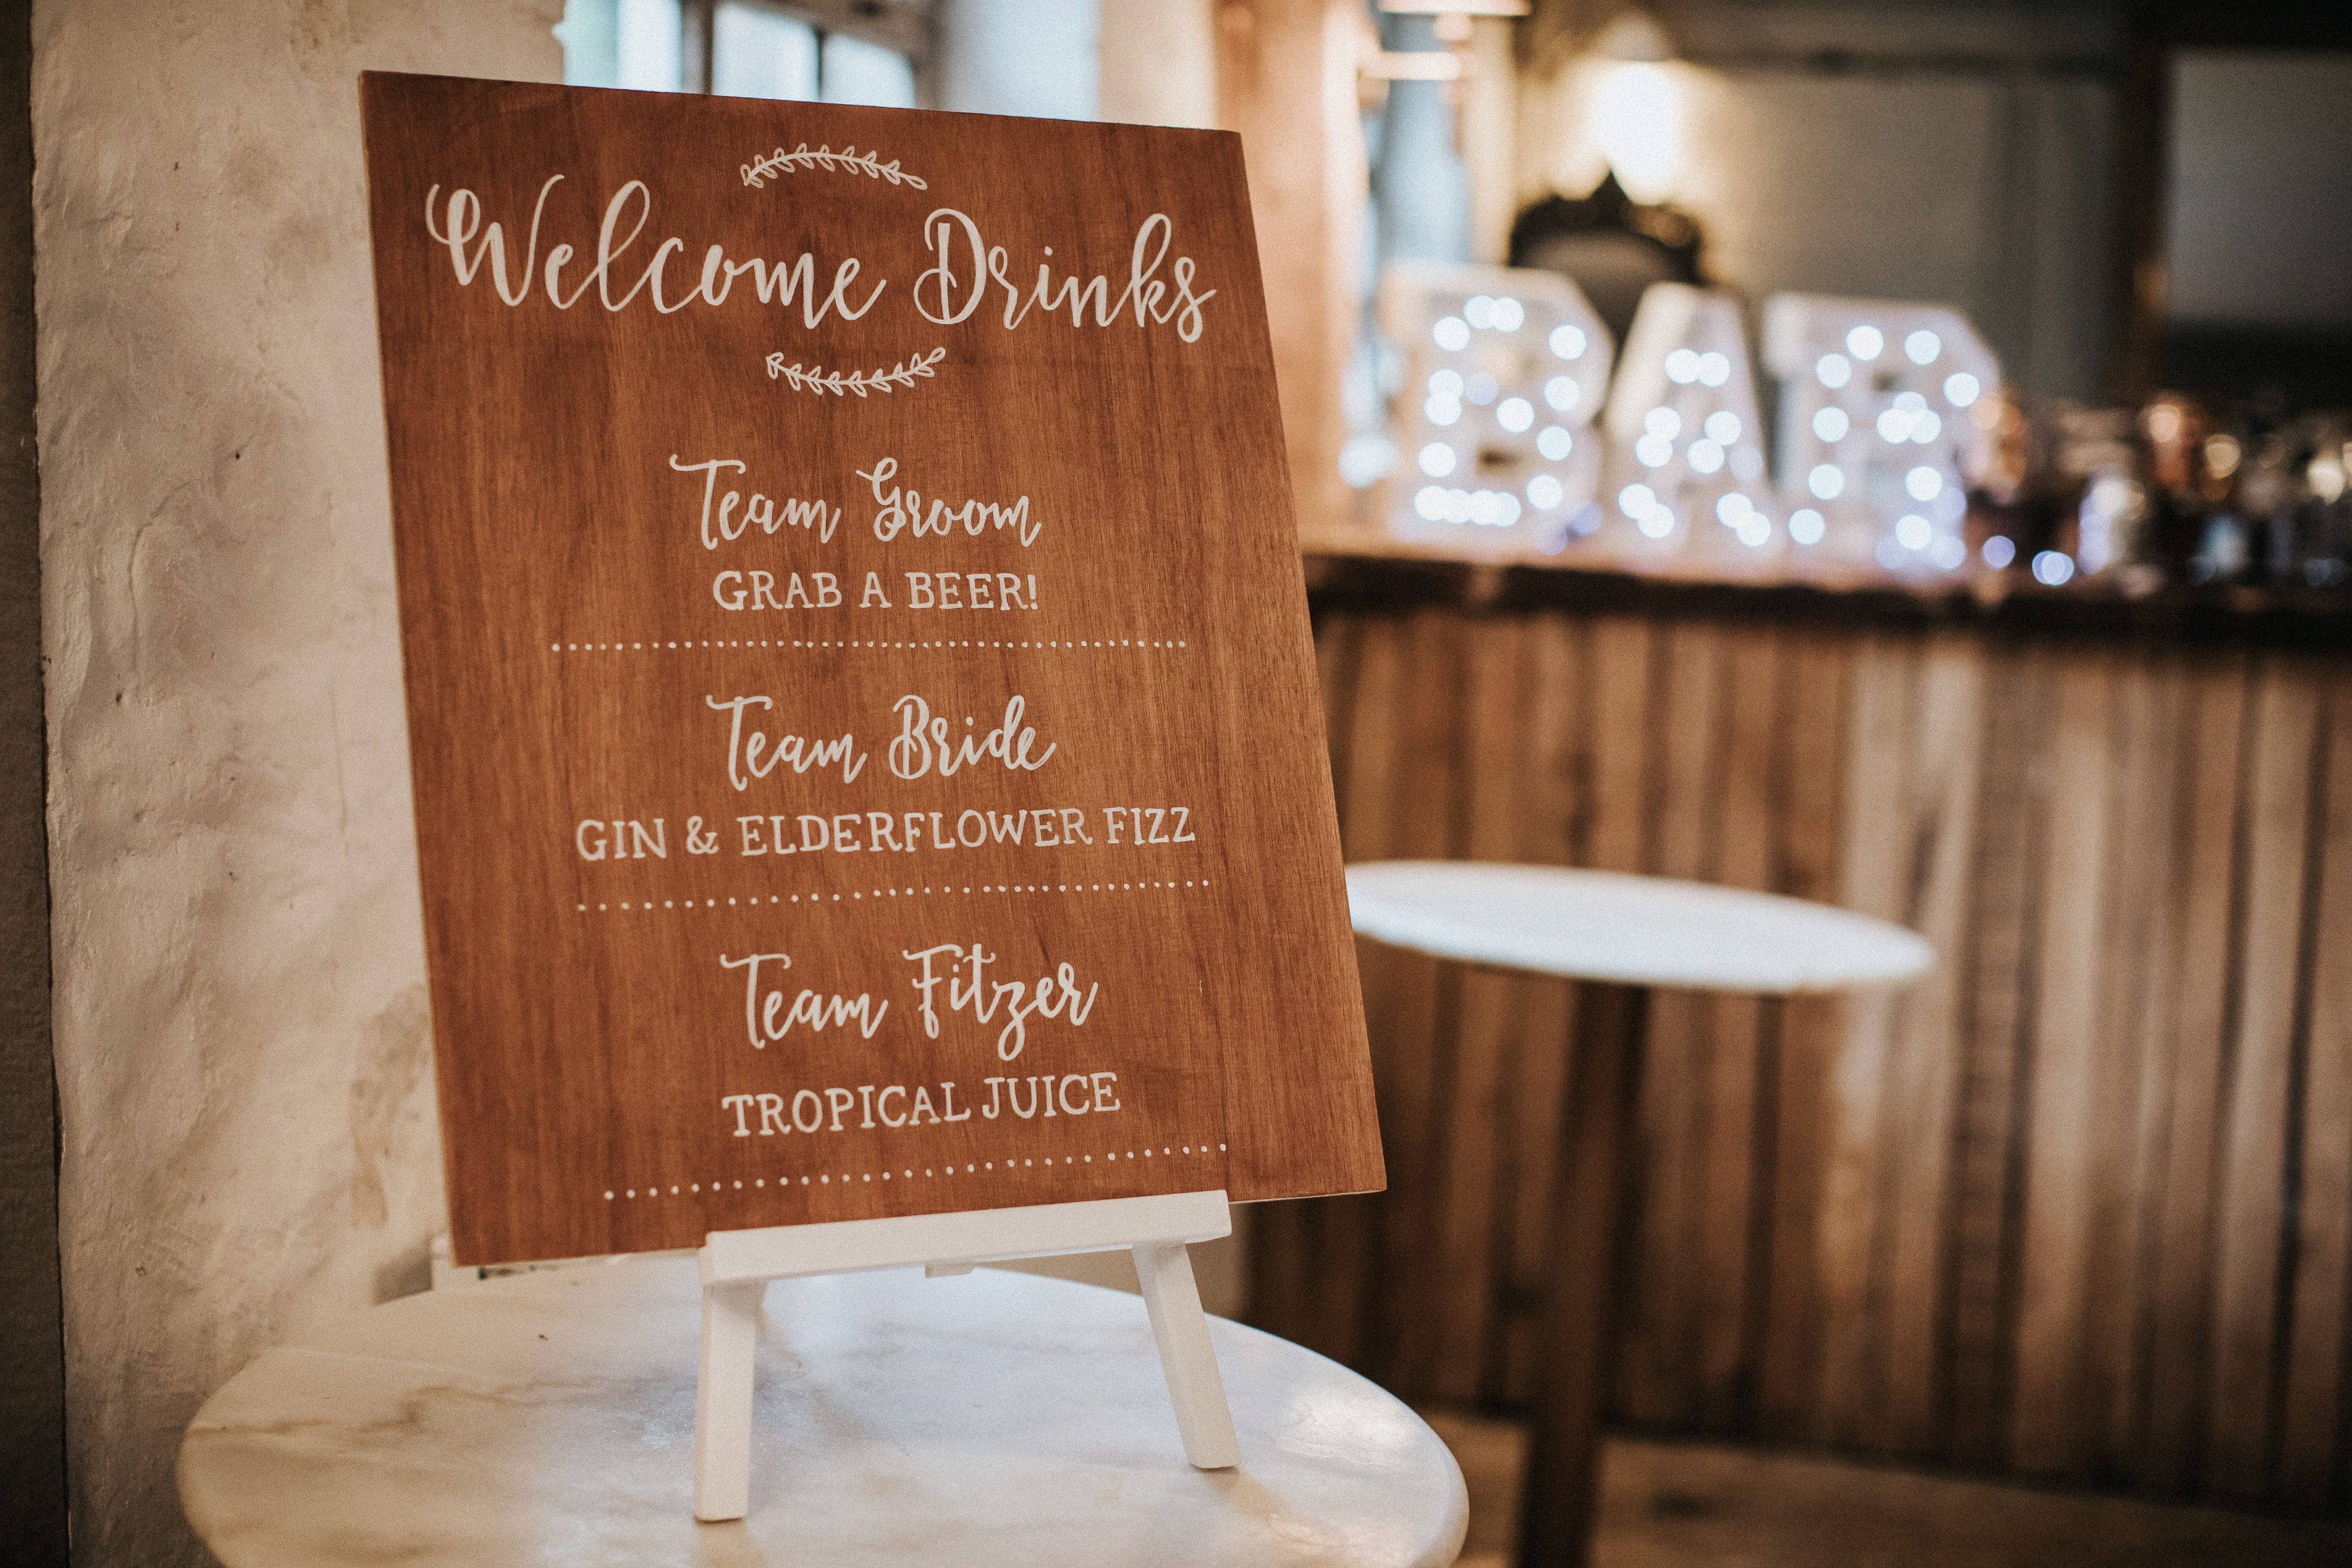 Welcome Drinks
Team Groom
GRAB A BEER!
Team Bride
GIN & ELDERFLOWER FIZZ
Team Fitzer
TROPICAL JUICE
BAR